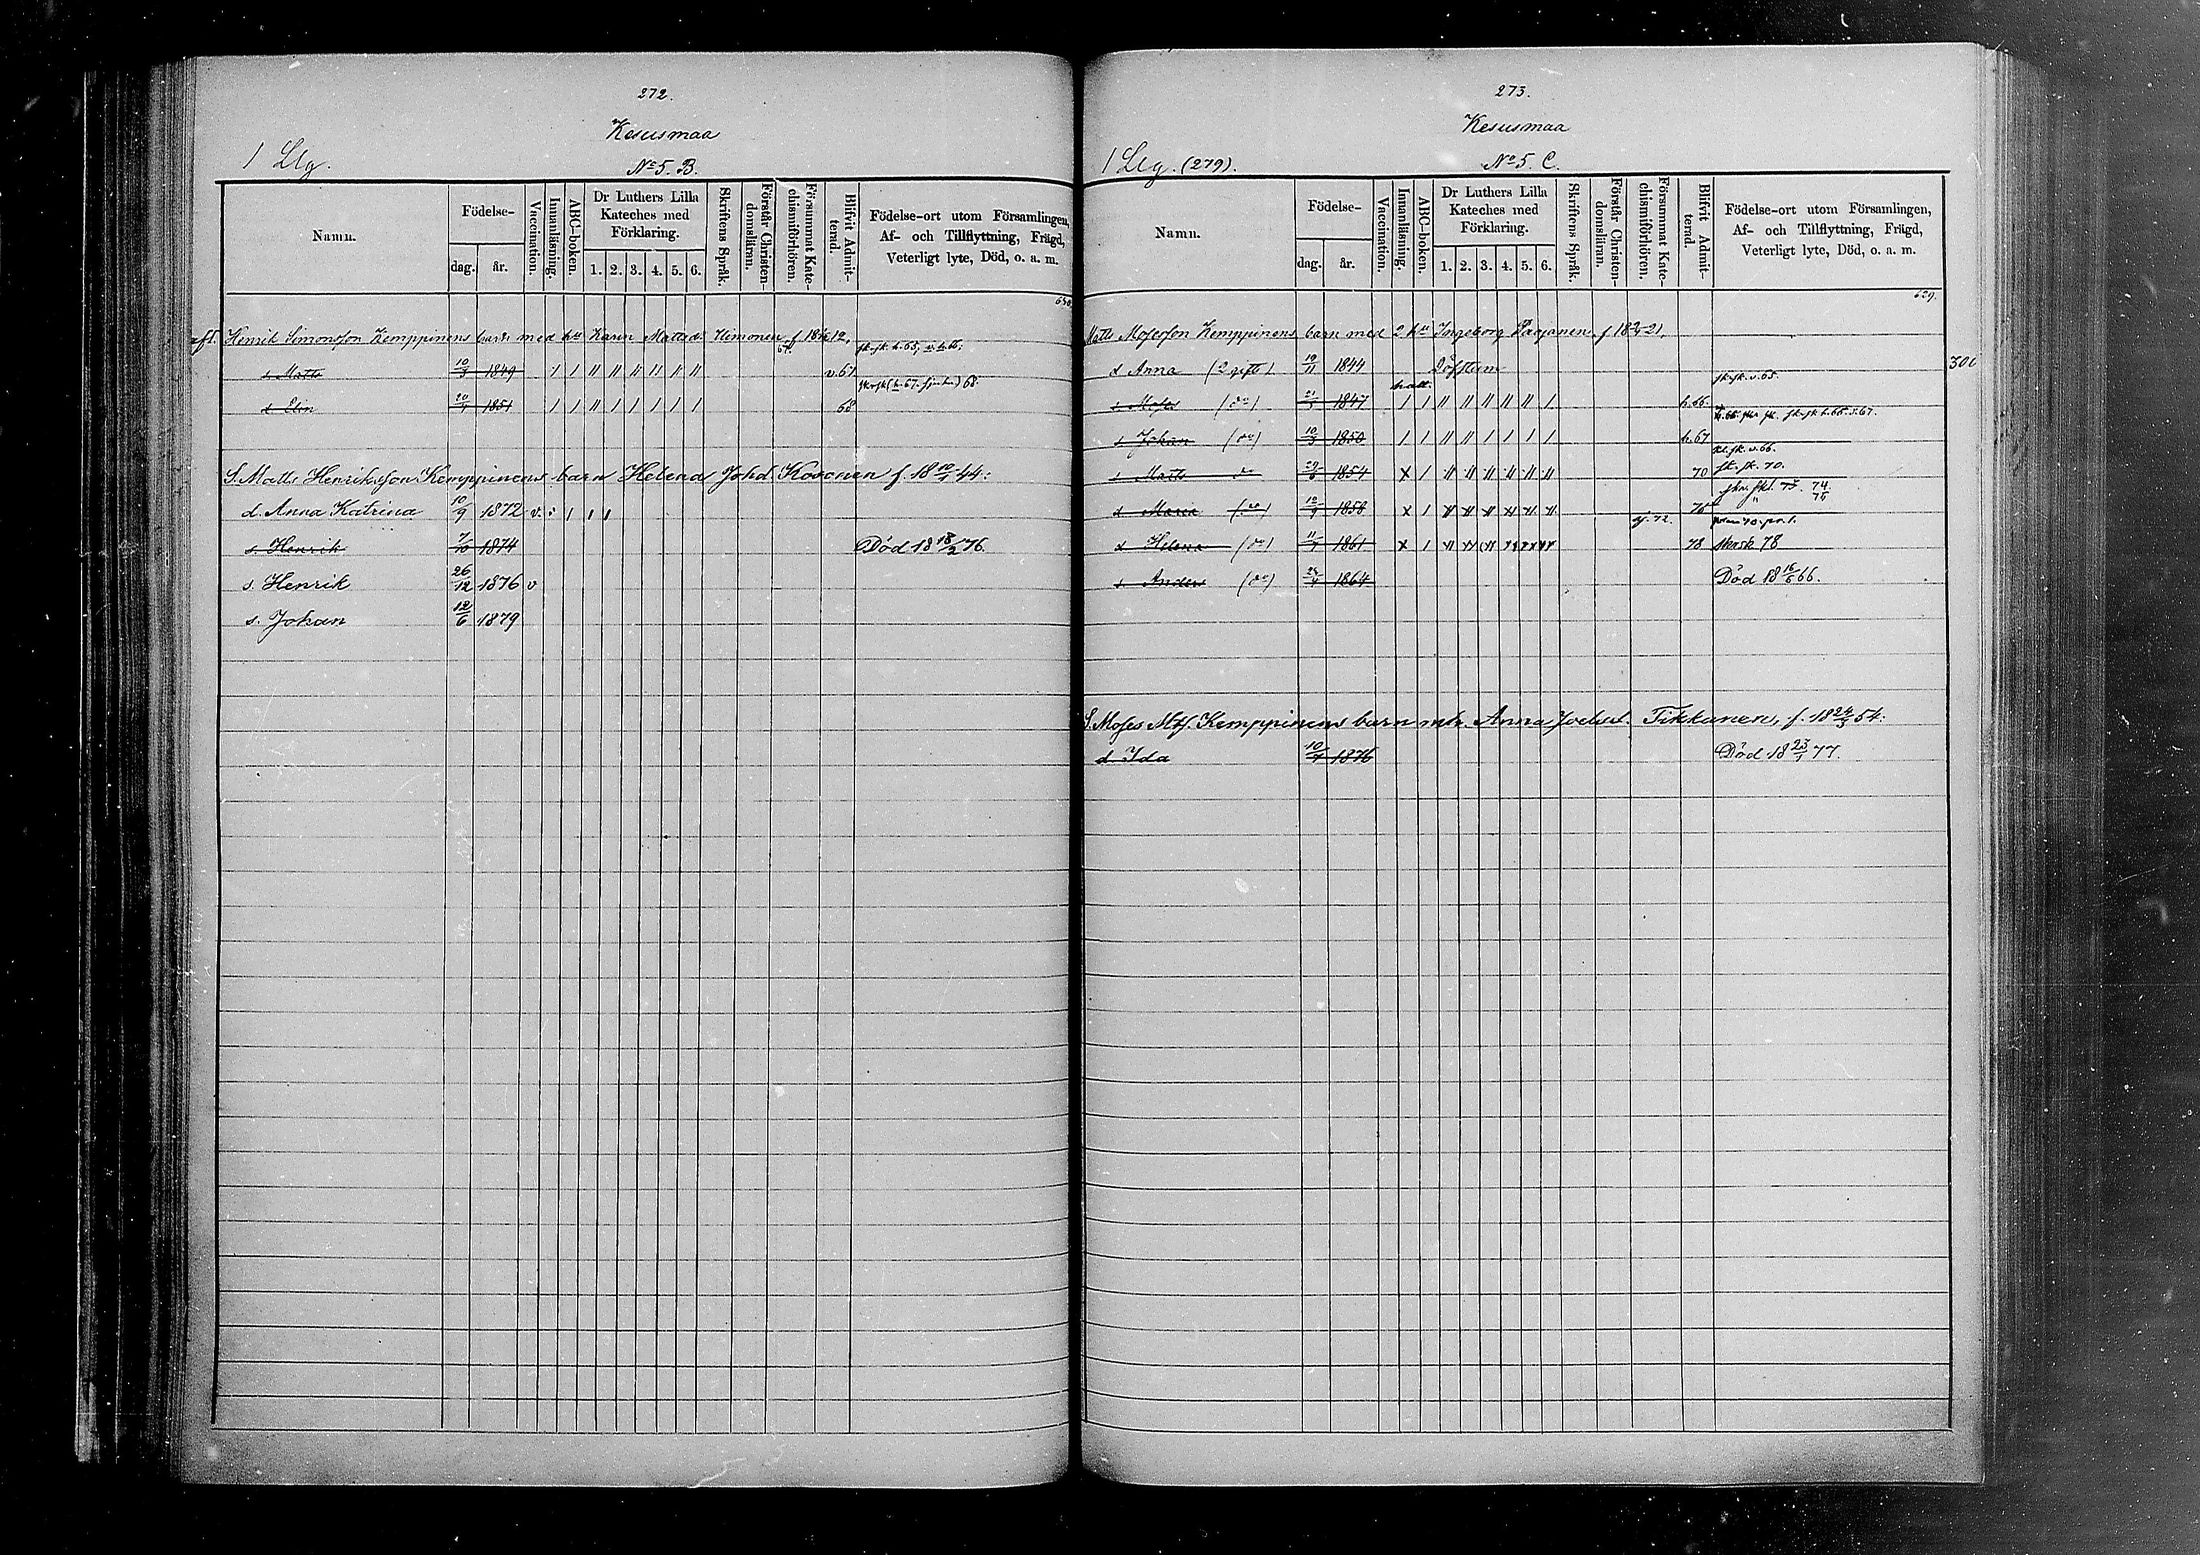 272.
Kesusmaa
1 Llg.
No 5. B.
Namn.
Födelse-
dag.
år.
Vaccination.
Innanläsning.
ABC-boken.
Dr Luthers Lilla
Kateches med
Förklaring.
1. 2. 3. 4. 5. 6.
Skriftens Språk.
Förstår Christen-
domsläran.
Försummat Kate-
chismiförhören.
Blifvit Admit-
terad.
Födelse-ort utom Församlingen,
Af- och Tillflyttning, Frägd,
Veterligt lyte, Död, o. a. m.
Henrik Simonsson Kemppinens barn med hu Karin Mattsd:
s Matts 10/3 1849 / / // // // // // // v.67
s Elin 20/4 1851 / / // / / / / / 68
S. Matts Henriksson Kemppinens barn Helena Johd. Kovonen f. 18 10/1 44:
d. Anna Katrina 10/9 1872 v.
s. Henrik 7/10 1874 Död 18 18/2 76.
s. Henrik 26/12 1876 v
s. Johan 12/6 1879
273.
Kesusmaa
1 Llg. (279).
No 5. C.
Namn.
Födelse-
dag.
år.
Vaccination.
Innanläsning.
ABC-boken.
Dr Luthers Lilla
Kateches med
Förklaring.
1. 2. 3. 4. 5. 6.
Skriftens Språk.
Förstår Christen-
domsläran.
Försummat Kate-
chismiförhören.
Blifvit Admit-
terad.
Födelse-ort utom Församlingen,
Af- och Tillflyttning, Frägd,
Veterligt lyte, Död, o. a. m.
629.
Matts Mosesson Kemppinens barn med 2 hu Ingeborg
d Anna (2 gifte) 19/11 1844 300
s Moses (do) 1847 / / // // // // // / h.66
s Johan (do) 10/3 1850 / / // // / / / / h.67
s Matts do 29/6 1854 x / // // // // // // 70
d Maria (do) 12/9 1858 x /
d Helena (do) 1861 x / 78
s Anders (do) 1864 Död 18 16/6 66.
S. Moses Mtss. Kemppinens barn m.h. Anna Joelsd. Tikkanen, f. 18 24/3 54:
d Ida 1876 Död 18 23/1 77.